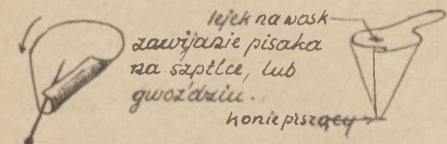 lejek na wosk
zawijanie pisaka
na szpilce, lub
gwoździu.
koniec piszący